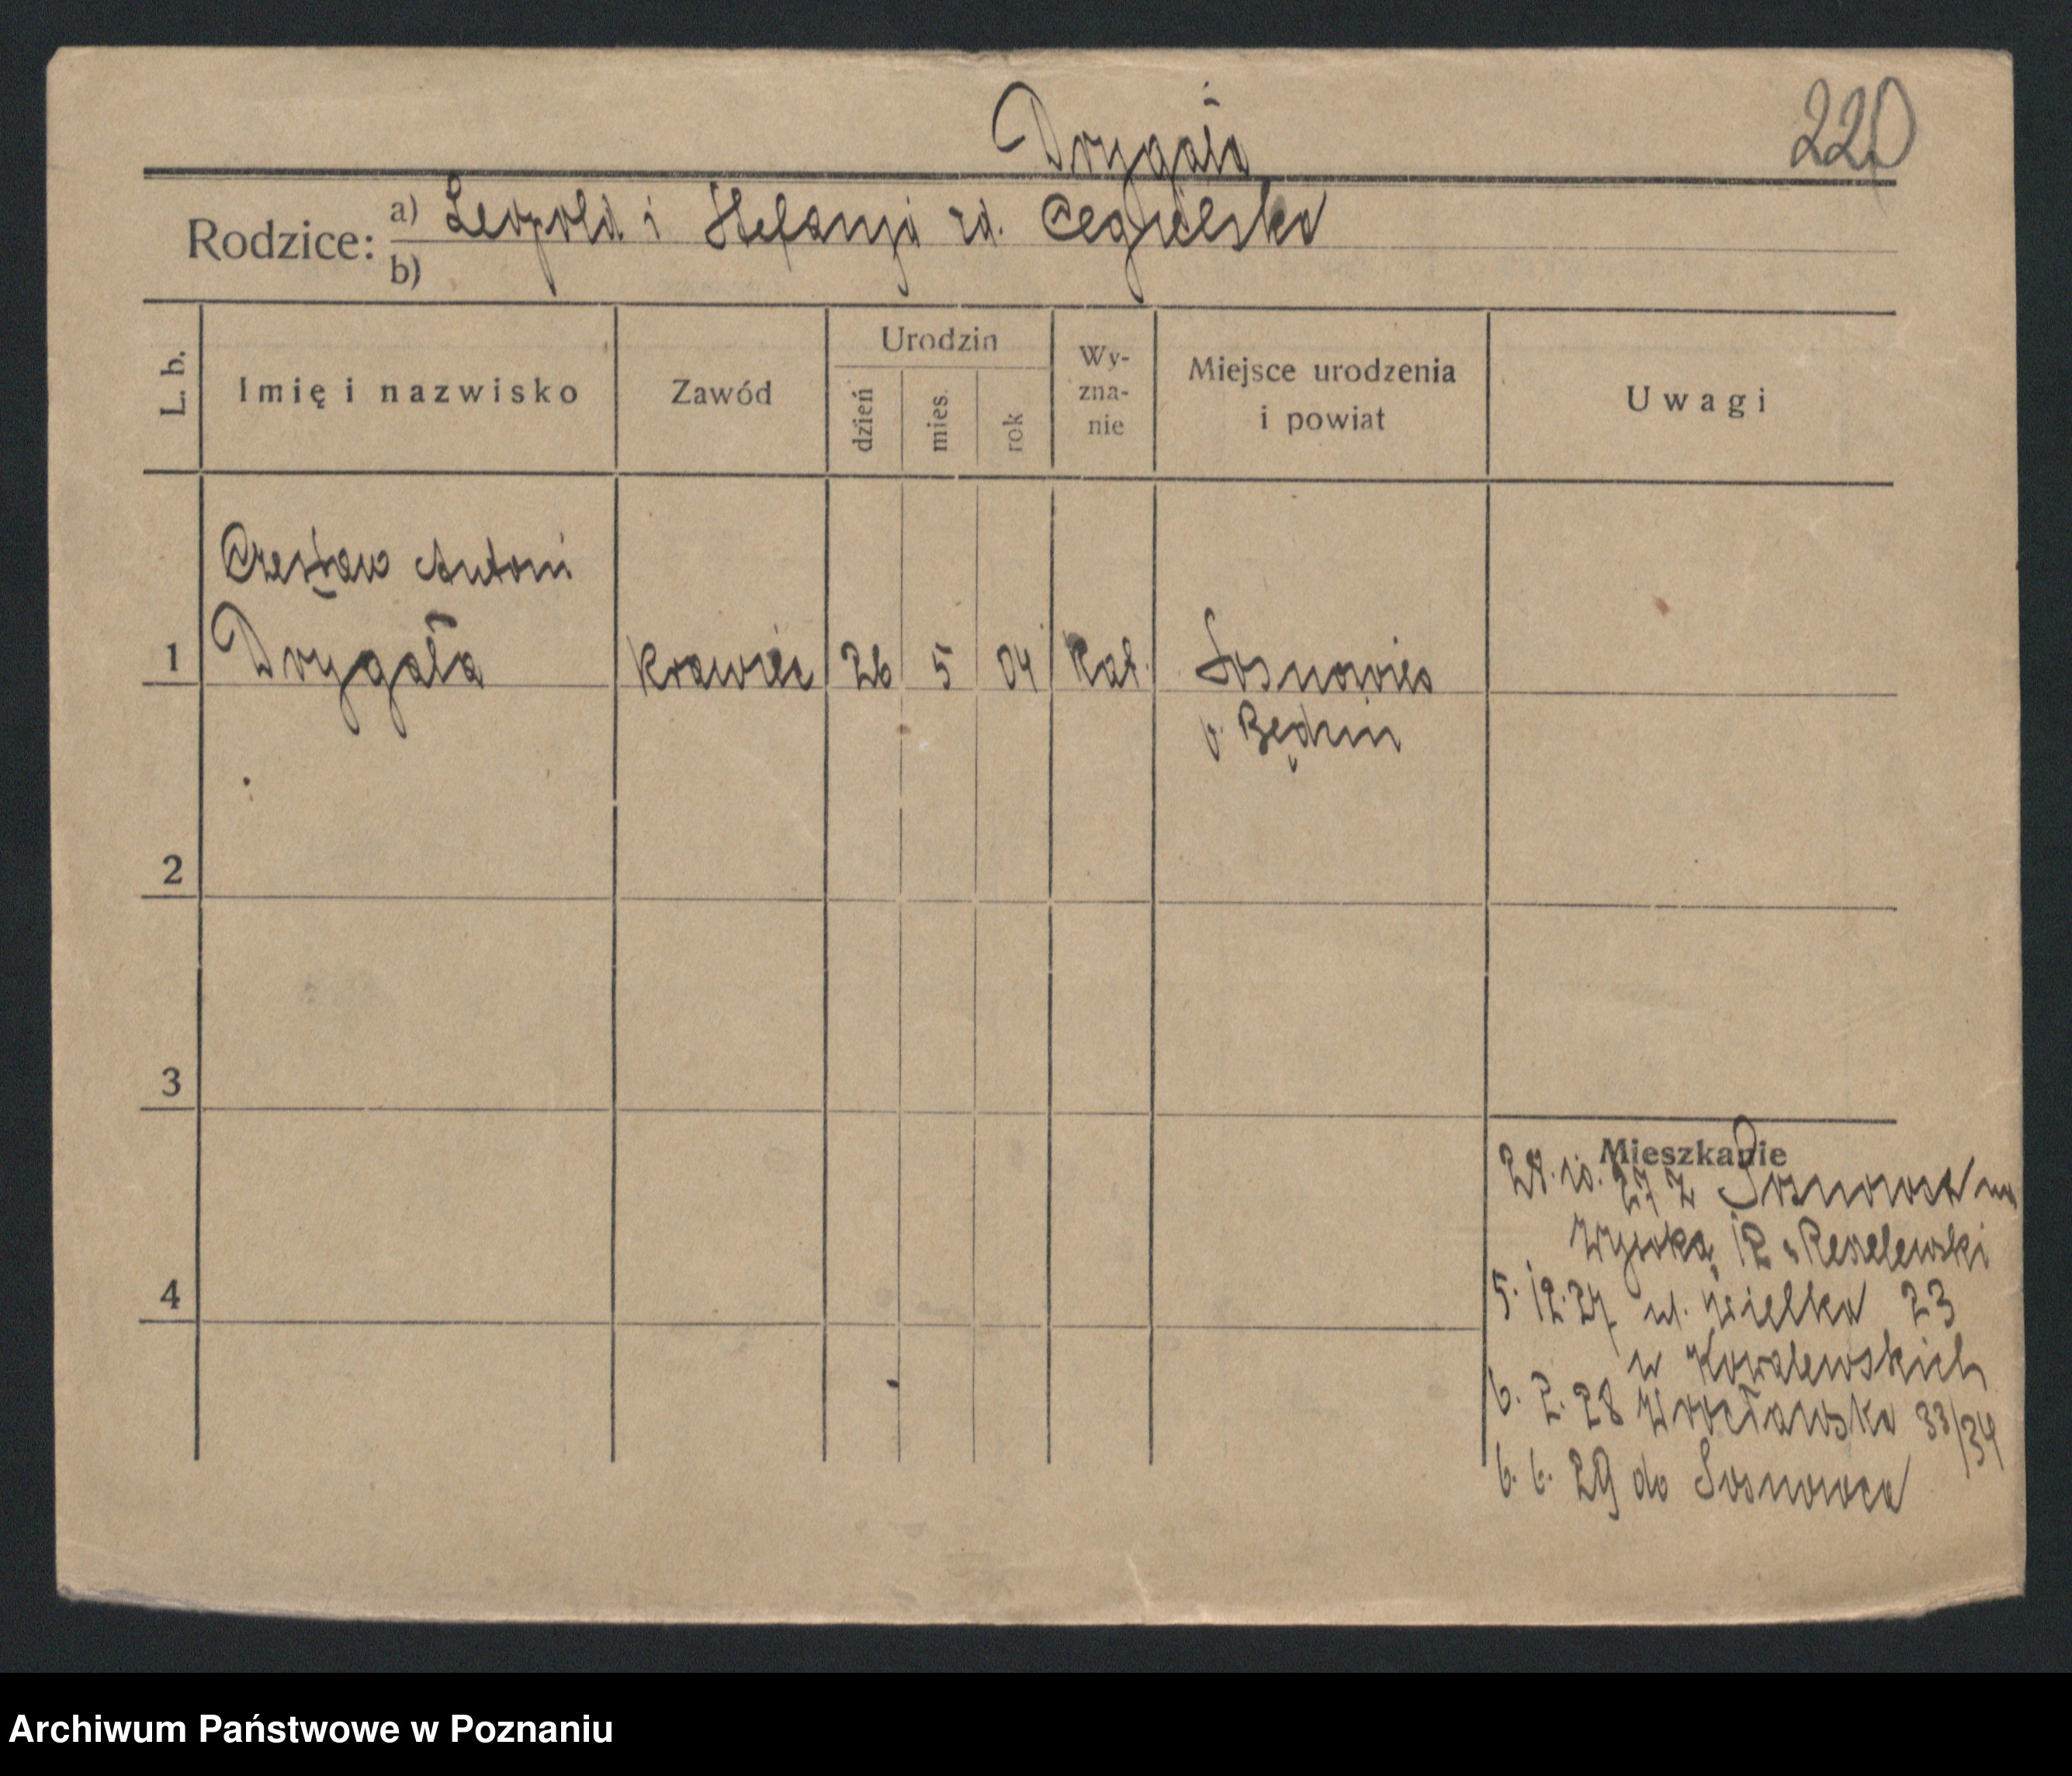 Drygała
220
Rodzice: a) Leopold i Stefanja zd. Cegielska
b)
L. b.
Imię i nazwisko
Zawód
Urodzin
dzień
mies.
rok
Wy-
zna-
nie
Miejsce urodzenia
i powiat
Uwagi
Czesław Antoni
1 Drygała krawiec 26 5 04 kat. Sosnowiec
p. Będzin
2
3
4
Mieszkanie
28. 10. 27 z Sosnowca na
Wysoka 12
5. 12. 27 ul. Wielka 23
u Kowalewskich
6. 2. 28 Wrocławska 33/34
6. 6. 29 do Sosnowca
Archiwum Państwowe w Poznaniu